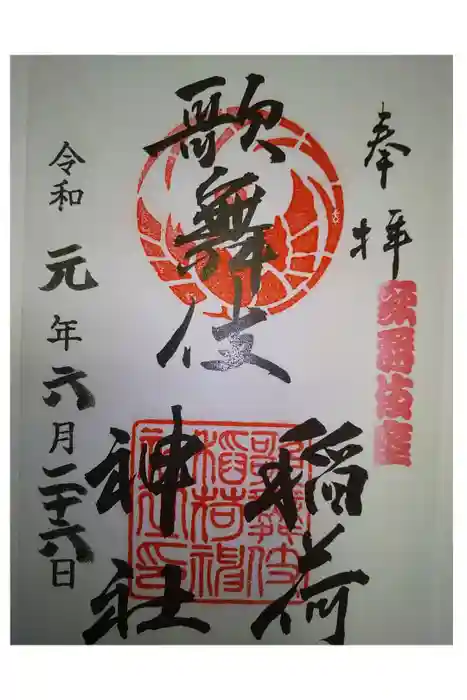 奉拝
歌舞伎座
歌舞伎
稲荷
神社
令和元年六月二十六日
歌舞伎
稲荷神
社之印